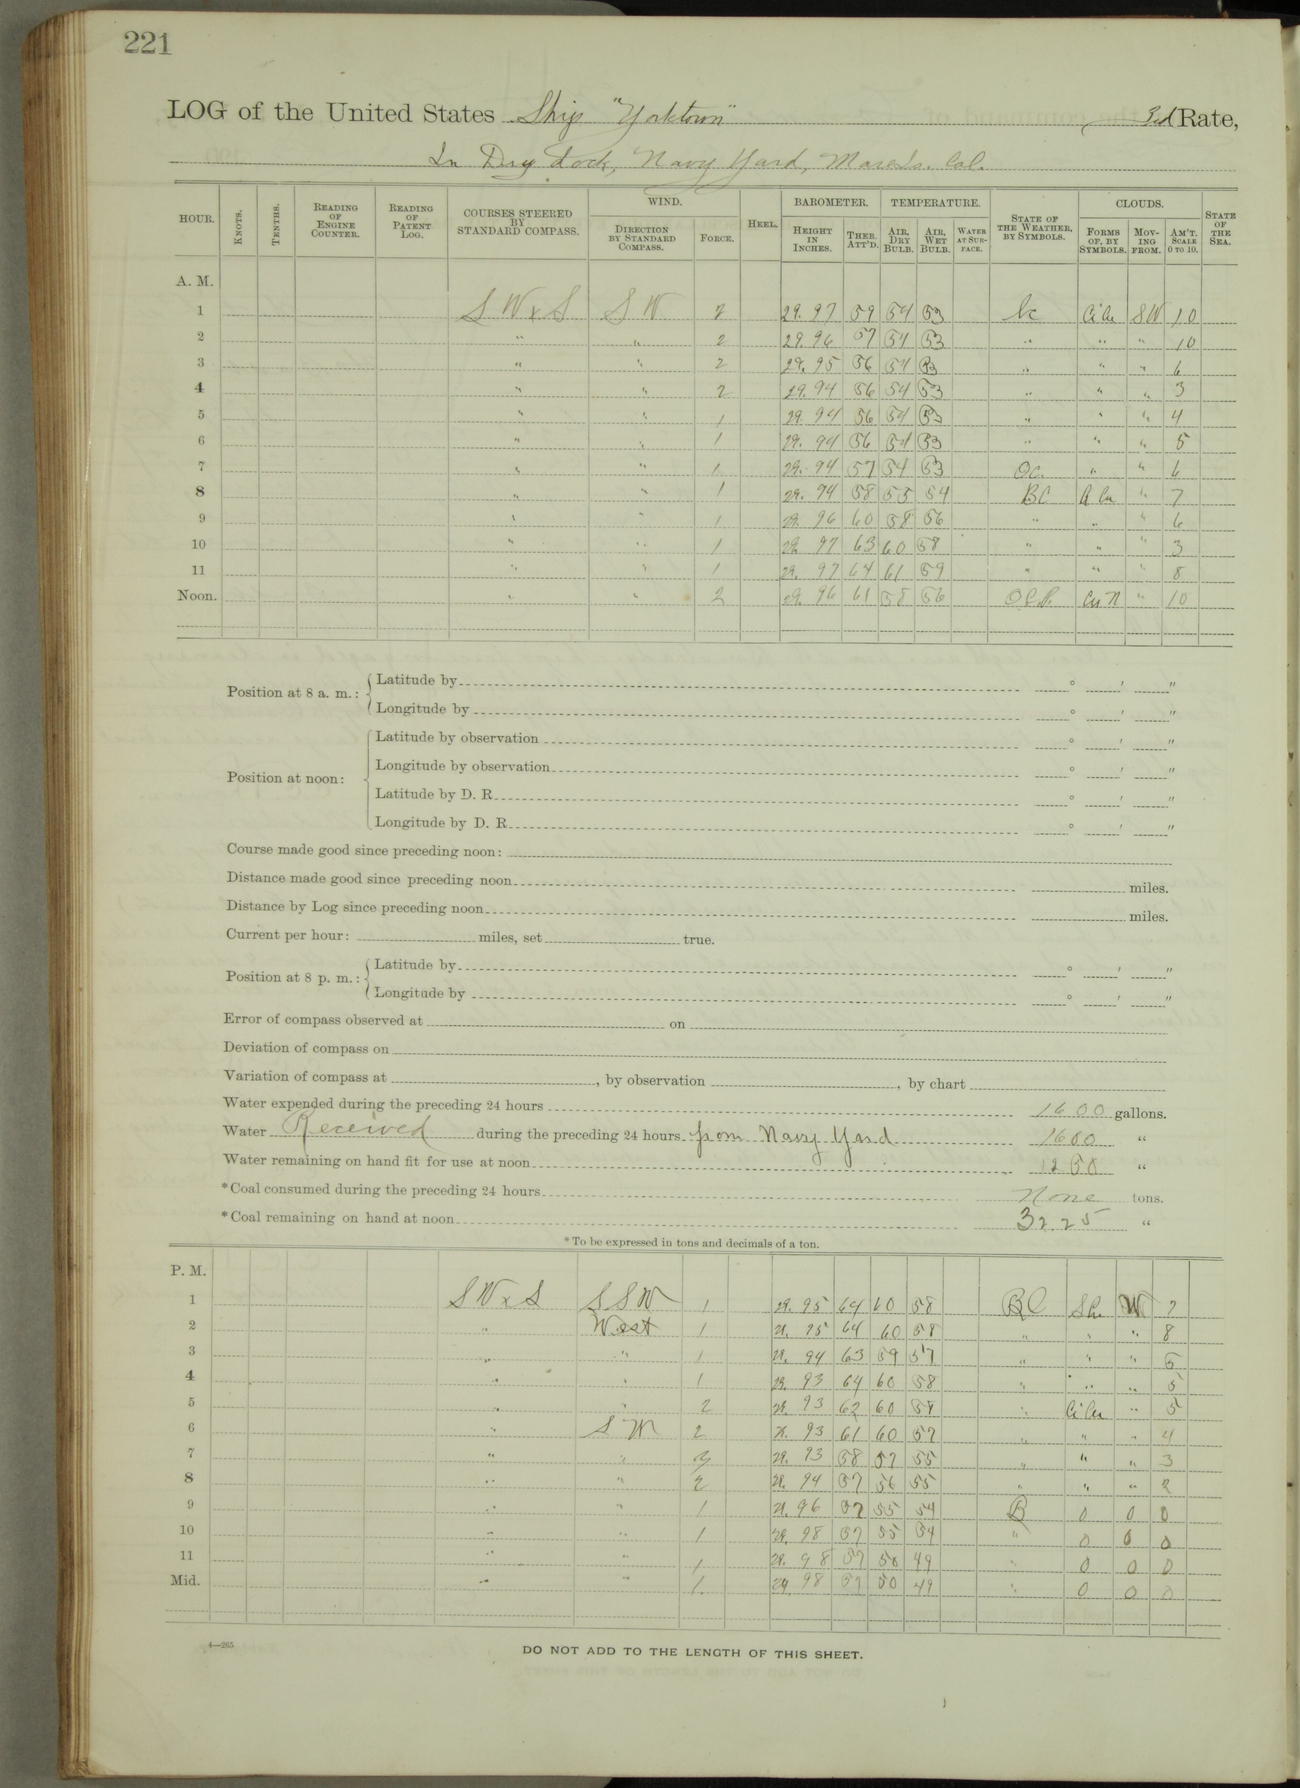 221
LOG of the United States Ship "Yorktown" 3rd Rate,
In Dry dock, Navy Yard, Mare Is. Cal.
HOUR. KNOTS. TENTHS. READING OF ENGINE COUNTER. READING OF PATENT LOG. COURSES STEERED BY STANDARD COMPASS. WIND. DIRECTION BY STANDARD COMPASS. FORCE. HEEL. BAROMETER. HEIGHT IN INCHES. THER. ATT'D. TEMPERATURE. AIR, DRY BULB. AIR, WET BULB. WATER AT SURFACE. STATE OF THE WEATHER, BY SYMBOLS. CLOUDS. FORMS OF, BY SYMBOLS. MOVING FROM. AM'T. SCALE 0 TO 10. STATE OF THE SEA.
A. M.
1 S W x S S W 2 29.97 59 54 53 bc Ci Cu SW 10
2 " " 2 29.96 57 54 53 " " " 10
3 " " 2 29.95 56 54 53 " " " 6
4 " " 2 29.94 56 54 53 " " " 3
5 " " 1 29.94 56 54 53 " " " 4
6 " " 1 29.94 56 54 53 " " " 5
7 " " 1 29.94 57 54 53 Oc. " " 6
8 " " 1 29.94 58 55 54 BC " 7
9 " " 1 29.96 60 58 56 " " " 6
10 " " 1 29.97 63 60 58 " " " 3
11 " " 1 29.97 64 61 59 " " " 8
Noon. " " 2 29.96 61 58 56 Cu N " 10
Position at 8 a. m.: Latitude by ° ' "
Longitude by ° ' "
Position at noon: Latitude by observation ° ' "
Longitude by observation ° ' "
Latitude by D. R. ° ' "
Longitude by D. R. ° ' "
Course made good since preceding noon:
Distance made good since preceding noon miles.
Distance by Log since preceding noon miles.
Current per hour: miles, set true.
Position at 8 p. m.: Latitude by ° ' "
Longitude by ° ' "
Error of compass observed at on
Deviation of compass on
Variation of compass at , by observation , by chart
Water expended during the preceding 24 hours 1600 gallons.
Water Received during the preceding 24 hours from Navy Yard 1600 "
Water remaining on hand fit for use at noon 1250 "
*Coal consumed during the preceding 24 hours None tons.
*Coal remaining on hand at noon 32.25 "
*To be expressed in tons and decimals of a ton.
P. M.
1 S W x S S S W 1 29.95 64 60 58 BC W 7
2 " West 1 29.95 64 60 58 " " " 8
3 " " 1 29.94 63 59 57 " " " 5
4 " " 1 29.93 64 60 58 " " " 5
5 " " 2 29.93 62 60 58 " Ci Cu " 5
6 " S W 2 29.93 61 60 57 " " " 4
7 " " 3 29.93 58 57 55 " " " 3
8 " " 2 29.94 57 56 55 " " " 2
9 " " 1 29.96 57 55 54 B 0 0 0
10 " " 1 29.98 57 55 54 " 0 0 0
11 " " 1 29.98 57 50 49 " 0 0 0
Mid. " " 1 29.98 57 50 49 " 0 0 0
4—265
DO NOT ADD TO THE LENGTH OF THIS SHEET.